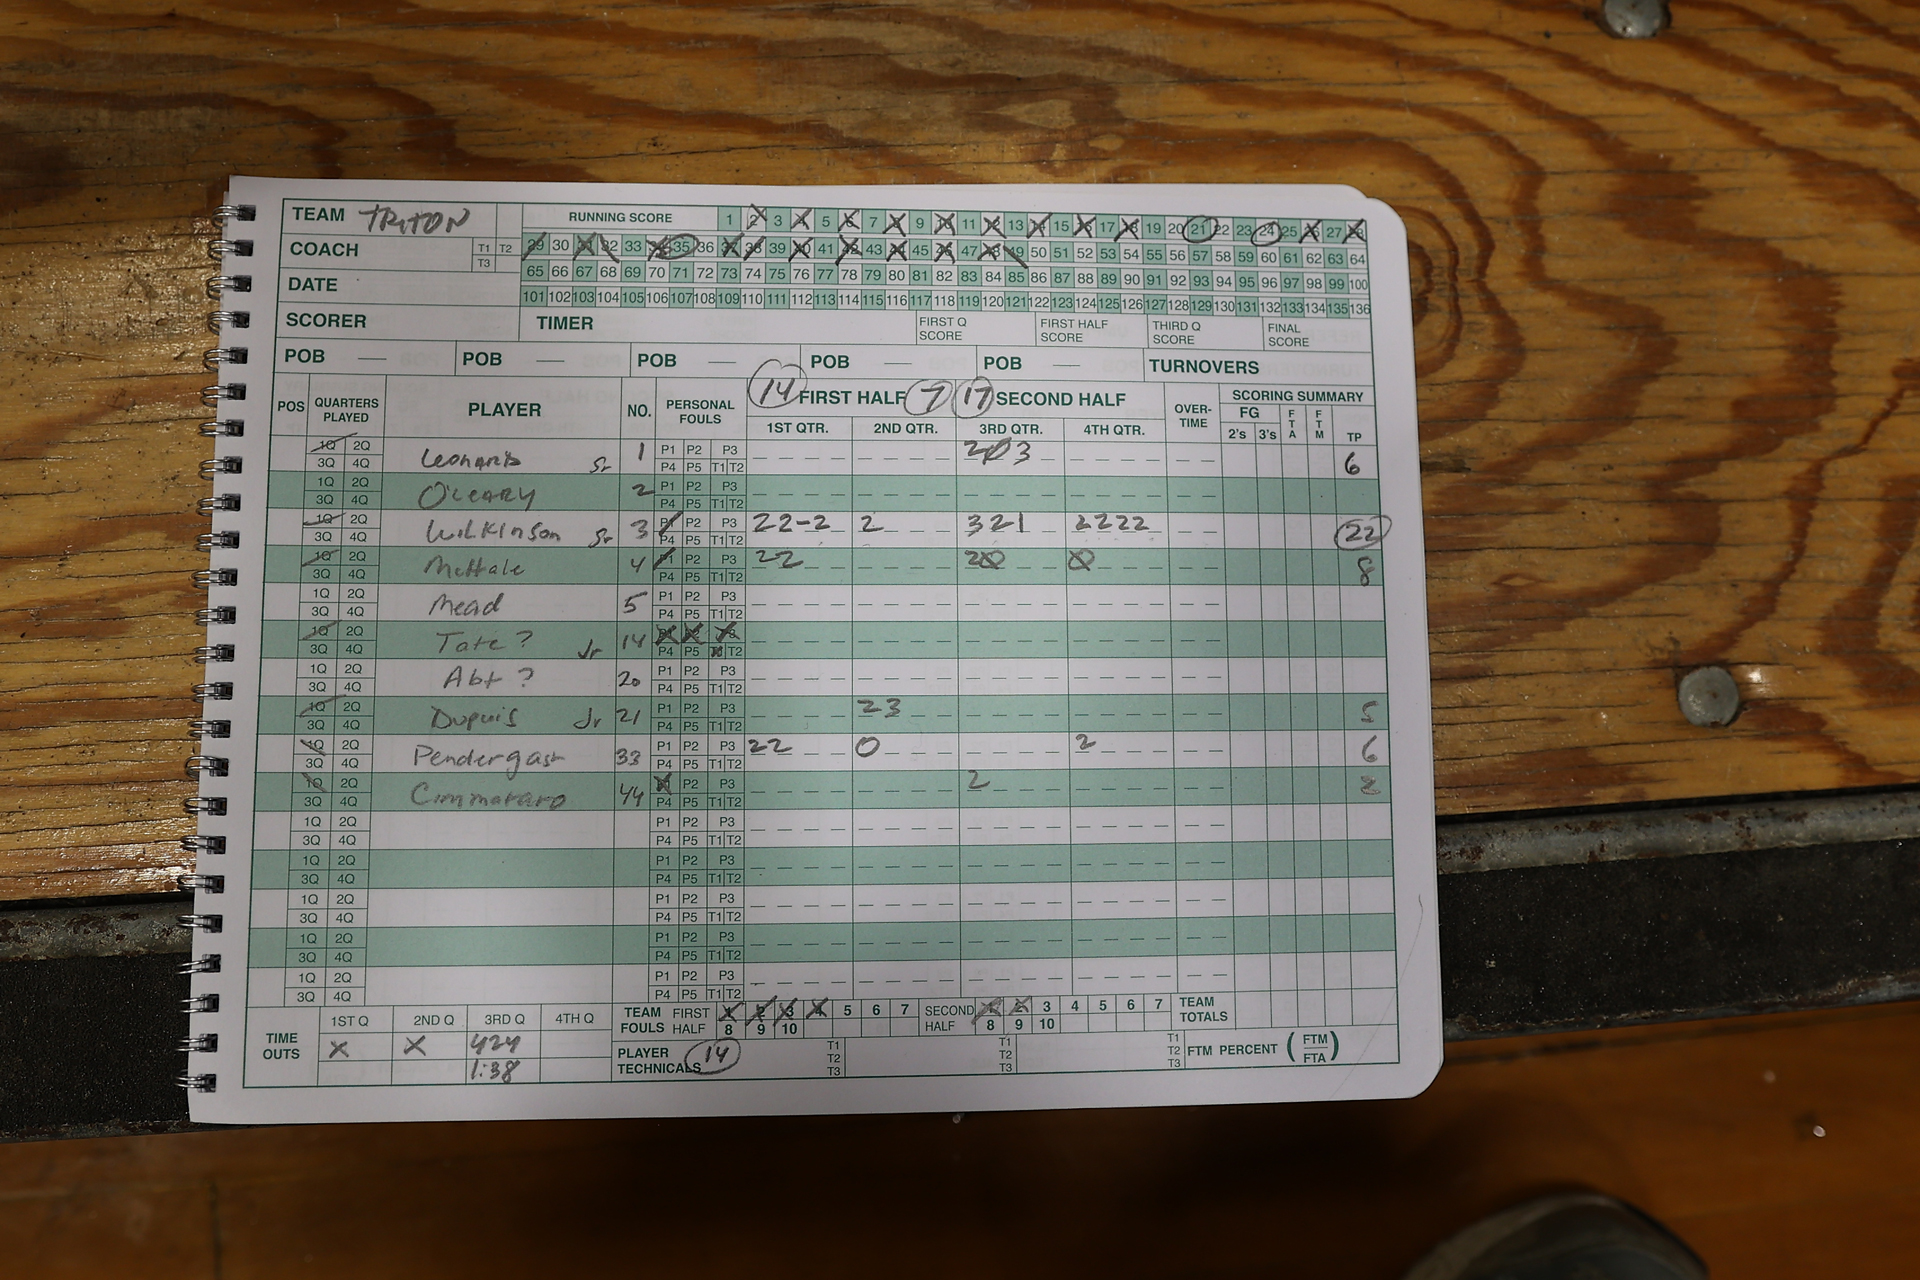 TEAM TRITON
RUNNING SCORE 1 2 3 4 5 6 7 8 9 10 11 12 13 14 15 16 17 18 19 20 21 22 23 24 25 26 27 28
COACH T1 T2 T3
29 30 31 32 33 34 35 36 37 38 39 40 41 42 43 44 45 46 47 48 49 50 51 52 53 54 55 56 57 58 59 60 61 62 63 64
65 66 67 68 69 70 71 72 73 74 75 76 77 78 79 80 81 82 83 84 85 86 87 88 89 90 91 92 93 94 95 96 97 98 99 100
DATE
101 102 103 104 105 106 107 108 109 110 111 112 113 114 115 116 117 118 119 120 121 122 123 124 125 126 127 128 129 130 131 132 133 134 135 136
SCORER TIMER FIRST Q SCORE FIRST HALF SCORE THIRD Q SCORE FINAL SCORE
POB — POB — POB — POB — POB — TURNOVERS
POS QUARTERS PLAYED PLAYER NO. PERSONAL FOULS 14 FIRST HALF 7 17 SECOND HALF OVER-TIME SCORING SUMMARY
1ST QTR. 2ND QTR. 3RD QTR. 4TH QTR. FG 2's 3's FTA FTM TP
1Q 2Q Leonard Sr 1 P1 P2 P3 3 6
3Q 4Q P4 P5 T1 T2
1Q 2Q O'LEARY 2 P1 P2 P3
3Q 4Q P4 P5 T1 T2
1Q 2Q WILKINSON Sr 3 P1 P2 P3 22-2 2 321 2222 22
3Q 4Q P4 P5 T1 T2
1Q 2Q McHale 4 P1 P2 P3 22 8
3Q 4Q P4 P5 T1 T2
1Q 2Q Mead 5 P1 P2 P3
3Q 4Q P4 P5 T1 T2
1Q 2Q Tate? Jr 14 P1 P2 P3
3Q 4Q P4 P5 T1 T2
1Q 2Q Abt? 20 P1 P2 P3
3Q 4Q P4 P5 T1 T2
1Q 2Q Dupuis Jr 21 P1 P2 P3 23 5
3Q 4Q P4 P5 T1 T2
1Q 2Q Pendergast 33 P1 P2 P3 22 0 2 6
3Q 4Q P4 P5 T1 T2
1Q 2Q 44 P1 P2 P3 2 2
3Q 4Q P4 P5 T1 T2
1Q 2Q P1 P2 P3
3Q 4Q P4 P5 T1 T2
1Q 2Q P1 P2 P3
3Q 4Q P4 P5 T1 T2
1Q 2Q P1 P2 P3
3Q 4Q P4 P5 T1 T2
1Q 2Q P1 P2 P3
3Q 4Q P4 P5 T1 T2
1Q 2Q P1 P2 P3
3Q 4Q P4 P5 T1 T2
TIME OUTS 1ST Q 2ND Q 3RD Q 4TH Q
X X 424
1:38
TEAM FOULS FIRST HALF 1 2 3 4 5 6 7 8 9 10 SECOND HALF 1 2 3 4 5 6 7 8 9 10 TEAM TOTALS
PLAYER TECHNICALS 14 T1 T2 T3 T1 T2 T3 T1 T2 T3 FTM PERCENT (FTM/FTA)